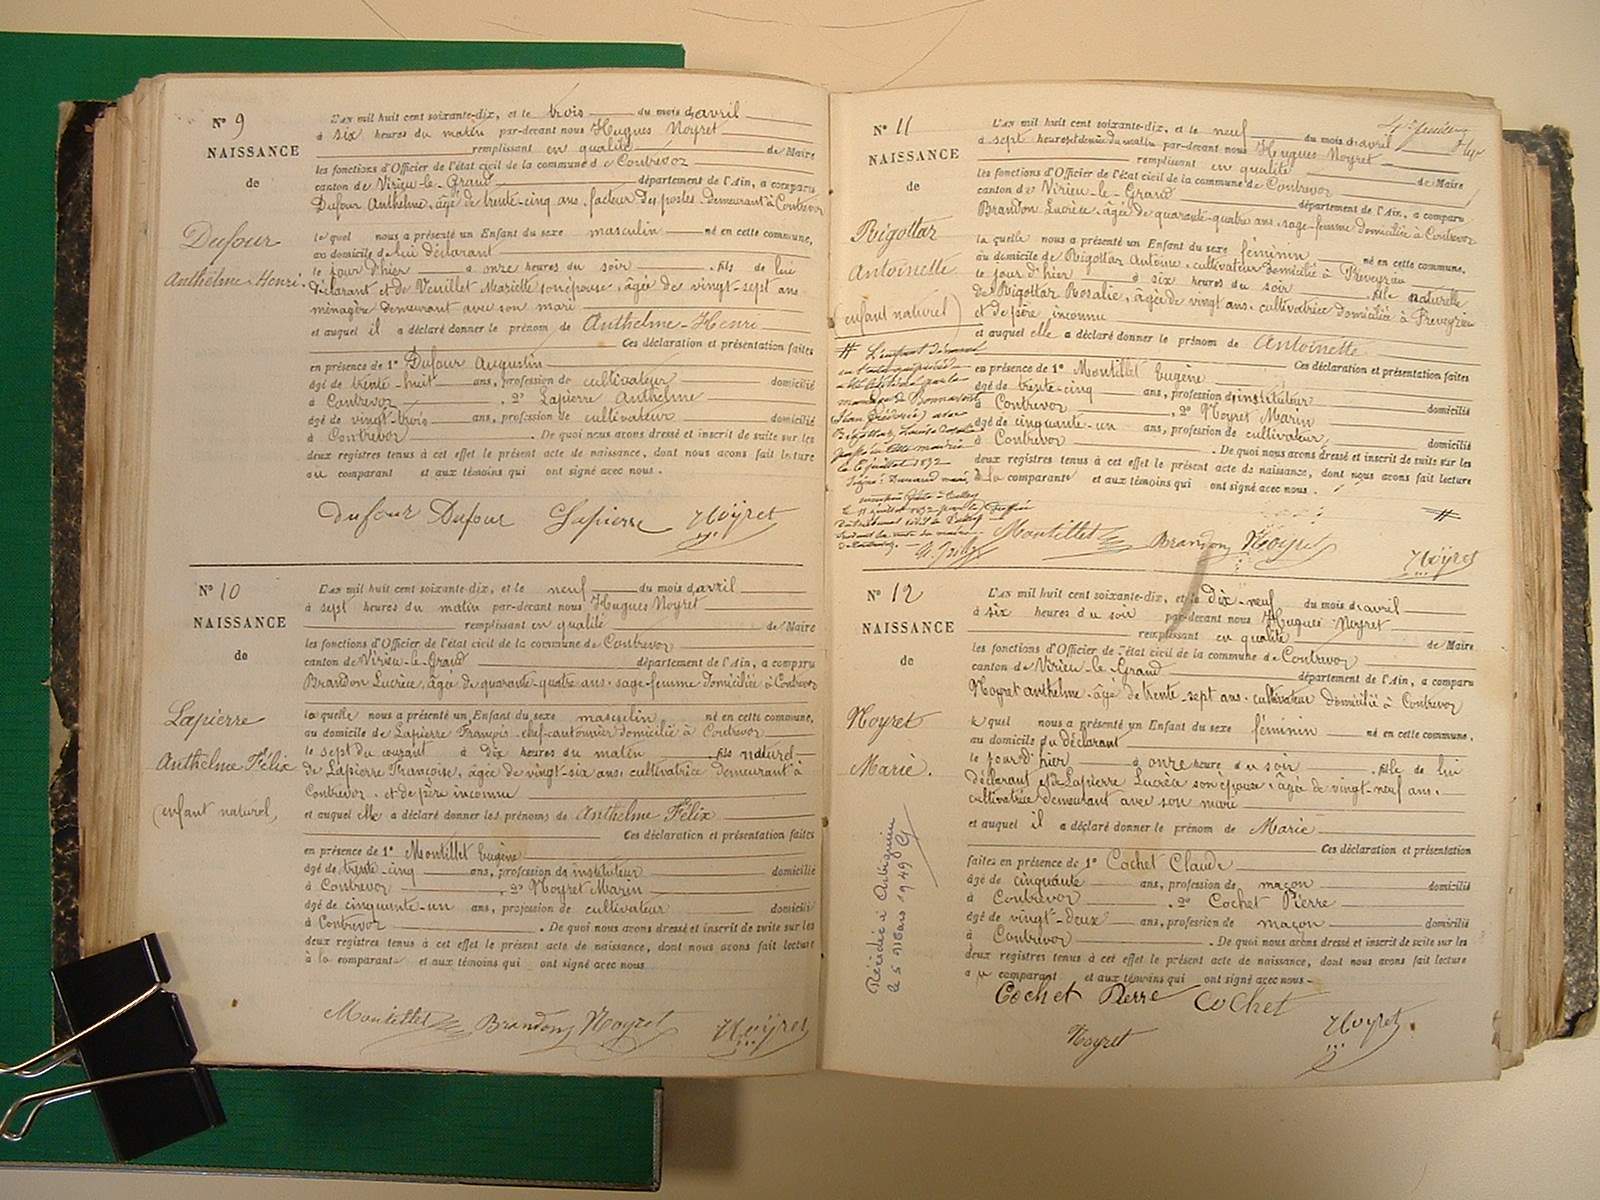 N° 9
NAISSANCE
de
Dufour
Anthelme-Henri.
L'AN mil huit cent soixante-dix, et le trois du mois d'avril
à six heures du matin par-devant nous Hugues Noyret
remplissant en qualité de Maire
les fonctions d'Officier de l'état civil de la commune de Contrevoz
canton de Virieu-le-Grand département de l'Ain, a comparu
Dufour Anthelme, âgé de trente-cinq ans, facteur des postes demeurant à Contrevoz
lequel nous a présenté un Enfant du sexe masculin né en cette commune,
au domicile de lui déclarant
le jour d'hier à onze heures du soir, fils de lui
déclarant et de Veuillet Mariette son épouse, âgée de vingt-sept ans
ménagère demeurant avec son mari
et auquel il a déclaré donner le prénom de Anthelme-Henri
Ces déclaration et présentation faites
en présence de 1° Dufour Augustin
âgé de trente-huit ans, profession de cultivateur domicilié
à Contrevoz, 2° Lapierre Anthelme
âgé de vingt-trois ans, profession de cultivateur domicilié
à Contrevoz. De quoi nous avons dressé et inscrit de suite sur les
deux registres tenus à cet effet le présent acte de naissance, dont nous avons fait lecture
au comparant et aux témoins qui ont signé avec nous.
Dufour Dufour Lapierre Noyret
N° 10
NAISSANCE
de
Lapierre
Anthelme Félix
(enfant naturel)
L'AN mil huit cent soixante-dix, et le neuf du mois d'avril
à sept heures du matin par-devant nous Hugues Noyret
remplissant en qualité de Maire
les fonctions d'Officier de l'état civil de la commune de Contrevoz
canton de Virieu-le-Grand département de l'Ain, a comparu
Brandon Lucrèce, âgée de quarante-quatre ans, sage-femme domiciliée à Contrevoz
laquelle nous a présenté un Enfant du sexe masculin né en cette commune,
au domicile de Lapierre François, chef-cantonnier domicilié à Contrevoz
le sept du courant à dix heures du matin, fils naturel
de Lapierre Françoise, âgée de vingt-six ans, cultivatrice demeurant à
Contrevoz, et de père inconnu
et auquel elle a déclaré donner les prénoms de Anthelme Félix
Ces déclaration et présentation faites
en présence de 1° Montillet Eugène
âgé de trente-cinq ans, profession de instituteur domicilié
à Contrevoz, 2° Noyret Marin
âgé de cinquante-un ans, profession de cultivateur domicilié
à Contrevoz. De quoi nous avons dressé et inscrit de suite sur les
deux registres tenus à cet effet le présent acte de naissance, dont nous avons fait lecture
à la comparante et aux témoins qui ont signé avec nous
Montillet Brandon Noyret Noyret
N° 11
NAISSANCE
de
Rigottaz
Antoinette
(enfant naturel)
L'AN mil huit cent soixante-dix, et le neuf du mois d'avril
à sept heures et demie du matin par-devant nous Hugues Noyret
remplissant en qualité de Maire
les fonctions d'Officier de l'état civil de la commune de Contrevoz
canton de Virieu-le-Grand département de l'Ain, a comparu
Brandon Lucrèce, âgée de quarante-quatre ans, sage-femme domiciliée à Contrevoz
laquelle nous a présenté un Enfant du sexe féminin né en cette commune,
au domicile de Rigottaz Antoine, cultivateur domicilié à Preveyzieu
le jour d'hier à six heures du soir, fille naturelle
de Rigottaz Rosalie, âgée de vingt ans, cultivatrice domiciliée à Preveyzieu
et de père inconnu
et auquel elle a déclaré donner le prénom de Antoinette
Ces déclaration et présentation faites
en présence de 1° Montillet Eugène
âgé de trente-cinq ans, profession d'instituteur domicilié
à Contrevoz, 2° Noyret Marin
âgé de cinquante-un ans, profession de cultivateur domicilié
à Contrevoz. De quoi nous avons dressé et inscrit de suite sur les
deux registres tenus à cet effet le présent acte de naissance, dont nous avons fait lecture
à la comparante et aux témoins qui ont signé avec nous.
# L'enfant dénommé
le 6 juillet 1892
#
Montillet Brandon Noyret Noyret
N° 12
NAISSANCE
de
Noyret
Marie.
L'AN mil huit cent soixante-dix, et le dix-neuf du mois d'avril
à six heures du soir par-devant nous Hugues Noyret
remplissant en qualité de Maire
les fonctions d'Officier de l'état civil de la commune de Contrevoz
canton de Virieu-le-Grand département de l'Ain, a comparu
Noyret Anthelme, âgé de trente-sept ans, cultivateur domicilié à Contrevoz
lequel nous a présenté un Enfant du sexe féminin né en cette commune,
au domicile du déclarant
le jour d'hier à onze heure du soir, fille de lui
déclarant et de Lapierre Lucrèce son épouse, âgée de vingt-neuf ans,
cultivatrice demeurant avec son mari
et auquel il a déclaré donner le prénom de Marie
Ces déclaration et présentation
faites en présence de 1° Cochet Claude
âgé de cinquante ans, profession de maçon domicilié
à Contrevoz, 2° Cochet Pierre
âgé de vingt-deux ans, profession de maçon domicilié
à Contrevoz. De quoi nous avons dressé et inscrit de suite sur les
deux registres tenus à cet effet le présent acte de naissance, dont nous avons fait lecture
au comparant et aux témoins qui ont signé avec nous.
Décédée à Arbignieu
le 5 Mars 1949
Cochet Pierre Cochet
Noyret Noyret